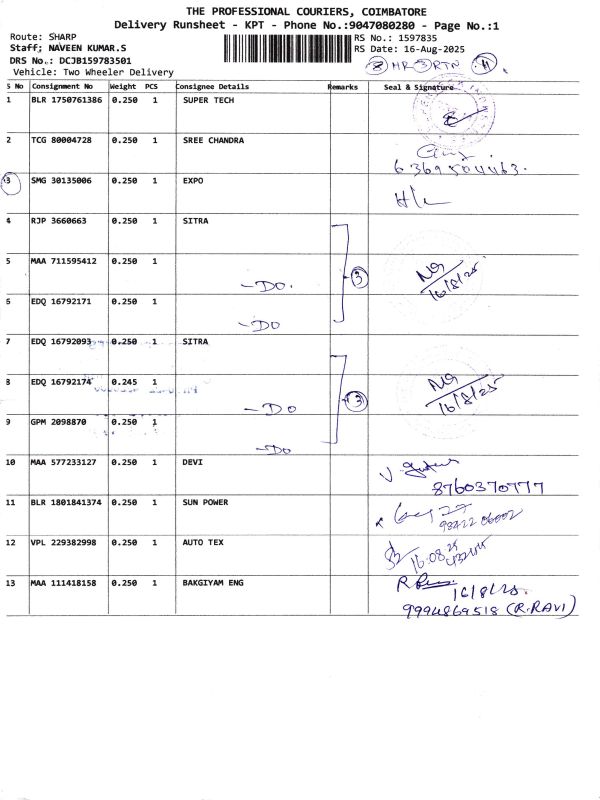 THE PROFESSIONAL COURIERS, COIMBATORE
Delivery Runsheet - KPT - Phone No.:9047080280 - Page No.:1
Route: SHARP
RS No.: 1597835
Staff; NAVEEN KUMAR.S
RS Date: 16-Aug-2025
DRS No.: DCJB159783501
Vehicle: Two Wheeler Delivery
8 HR 3 RTN 11
S No Consignment No Weight PCS Consignee Details Remarks Seal & Signature
1 BLR 1750761386 0.250 1 SUPER TECH
2 TCG 80004728 0.250 1 SREE CHANDRA
6369504463.
3 SMG 30135006 0.250 1 EXPO
4 RJP 3660663 0.250 1 SITRA
5 MAA 711595412 0.250 1
-DO. 3 16/8/25
6 EDQ 16792171 0.250 1
-DO
7 EDQ 16792093 0.250 1 SITRA
8 EDQ 16792174 0.245 1
-DO 3 16/8/25
9 GPM 2098870 0.250 1
-DO
10 MAA 577233127 0.250 1 DEVI
8760370777
11 BLR 1801841374 0.250 1 SUN POWER
12 VPL 229382998 0.250 1 AUTO TEX
16.08.25
13 MAA 111418158 0.250 1 BAKGIYAM ENG
16/8/25.
9994869518 (R.RAVI)